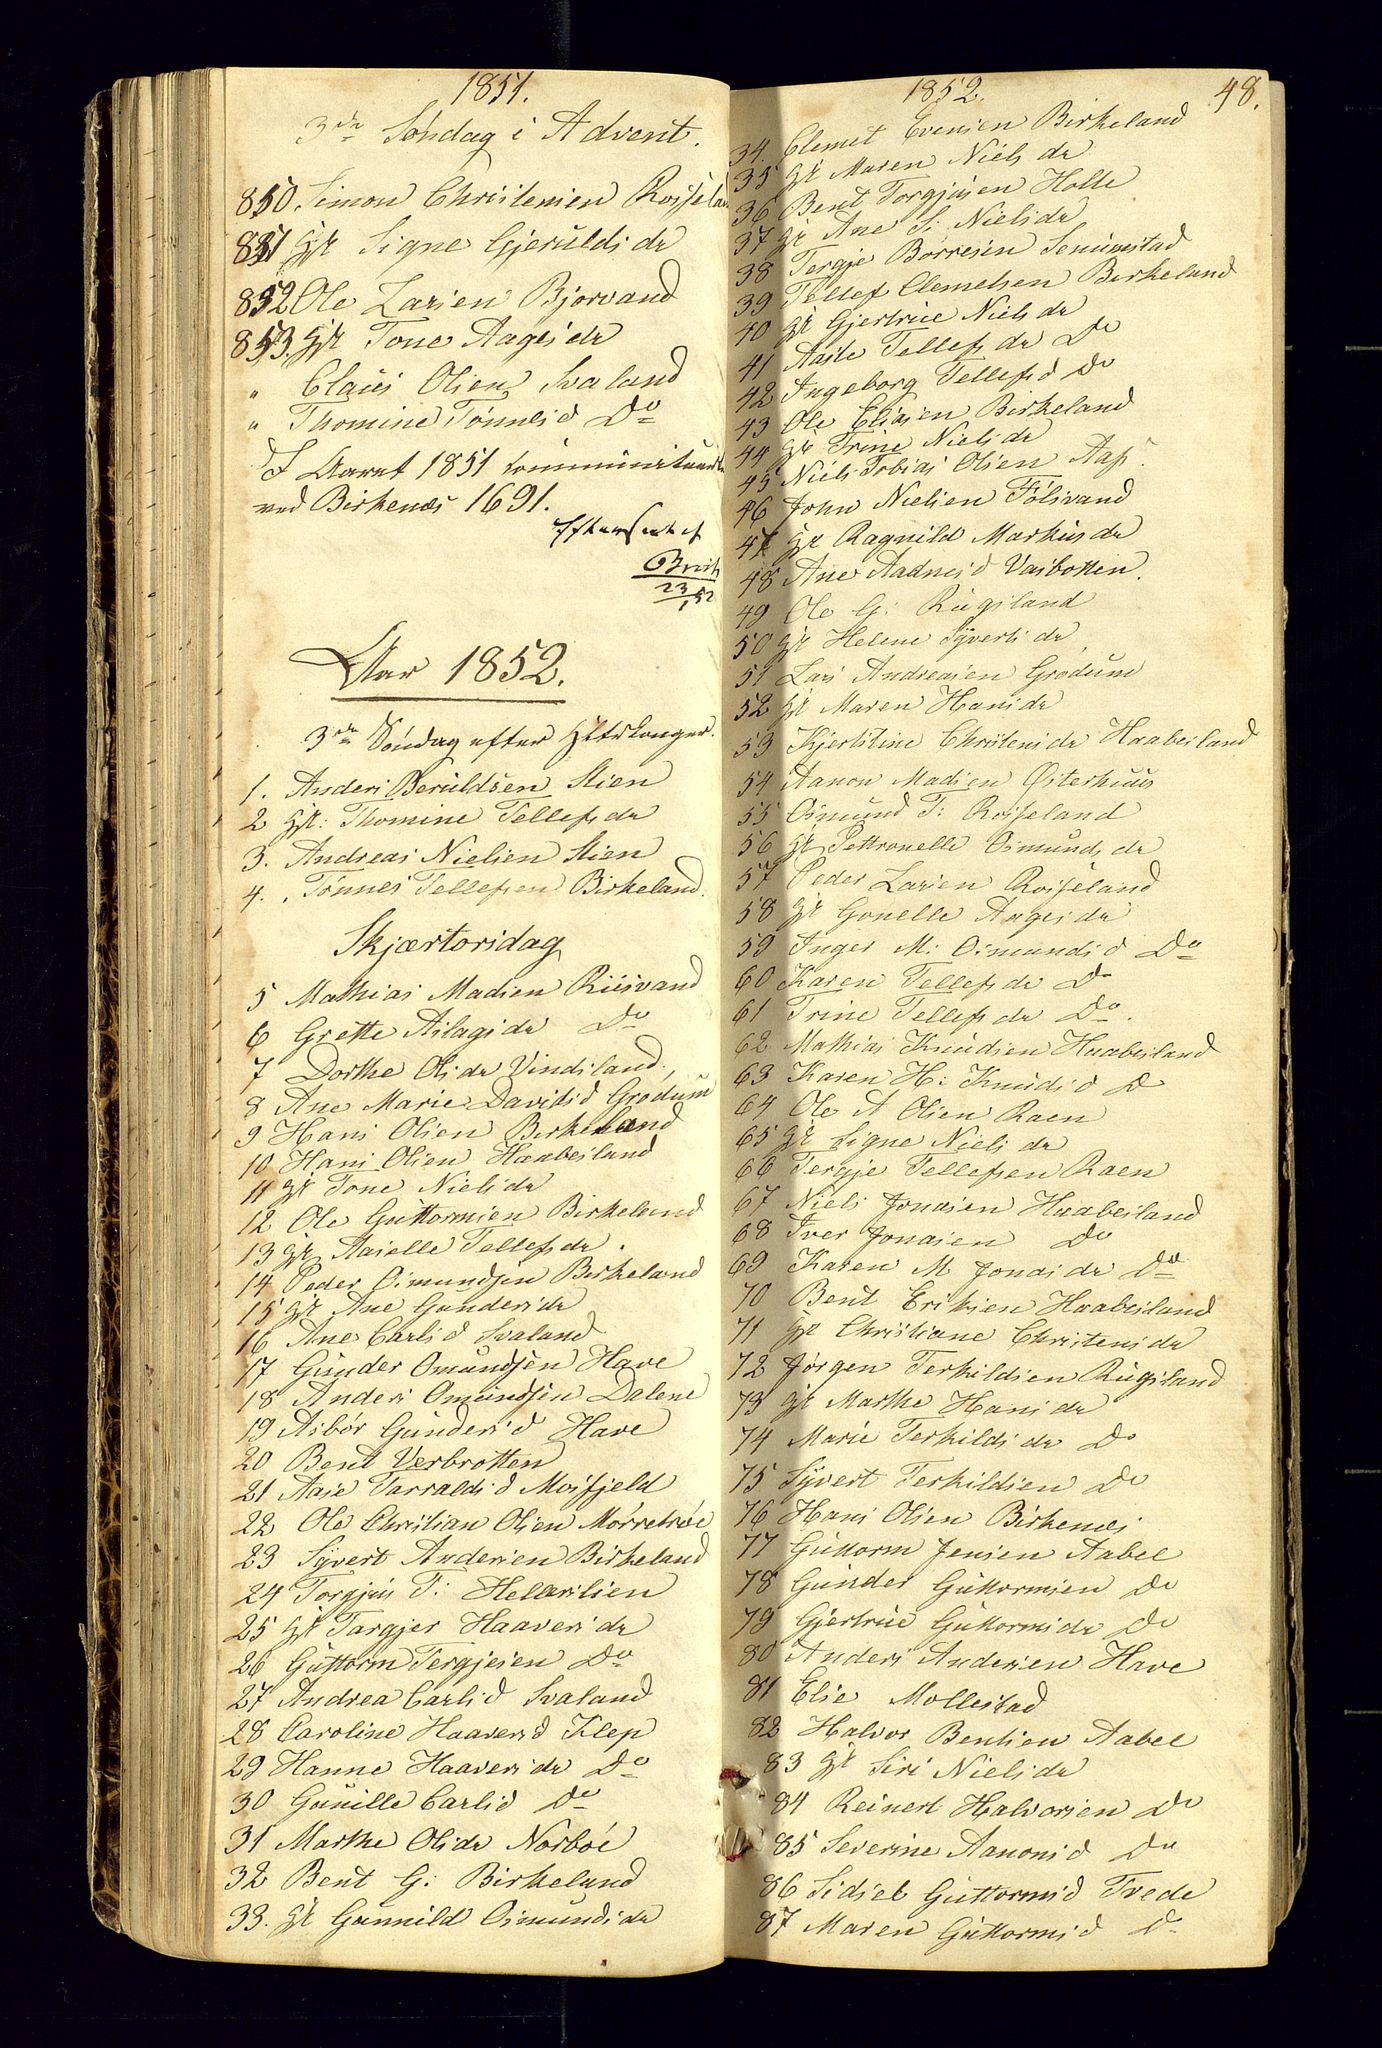 1851.
3de Søndag i Advent.
850. Simon Christensen Rosseland
851 Hr Signe Gjeruldsdr
852 Ole Larsen Bjorvand
853. Hr Tone Aagesdr
" Claus Olsen Svaland
" Thomine Tønnesd Do
I Aaret 1851 communicerede
ved Birkenæs 1691.
Efterseet af
Brich
23/1 52
Aar 1852.
3de Søndag efter Hltrekonger.
1. Anders Beruldsen Stien
2 Hr: Thomine Tellefsdr
3. Andreas Nielsen Stien
4. Tønnes Tellefsen Birkeland.
Skjærtorsdag
5 Mathias Madsen Riisvand
6 Grette Aslagsdr Do
7 Dorthe Olsdr Vindsland.
8 Ane Marie Davidsd Grødum
9 Hans Olsen Birkeland
10 Hans Olsen Haabesland
11 Hr Tone Nielsdr
12 Ole Guttormsen Birkeland
13 Hr Aaselle Tellefsdr.
14 Peder Osmundsen Birkeland
15 Hr Ane Gundersdr
16 Ane Carlsd Svaland
17 Gunder Omundsen Have
18 Anders Omundsen Dalene
19 Asbør Gundersd Have
20 Bent Verbrotten
21 Aase Tarraldsd Mosfjeld
22 Ole Christian Olsen Mørretrøe
23 Syvert Andersen Birkeland
24 Torgjus T: Helærslien
25 Hr Targjer Haaversdr
26 Guttorm Tergjesen Do
27 Andrea Carlsd Svaland
28 Caroline Haaversd Klep
29 Hanne Haaversdr Do
30 Gunille Carlsd Do
31 Marthe Olsdr Norbøe
32 Bent G: Birkeland
33. Hr Gunnild Osmundsdr
1852.
48.
34. Clemet Evensen Birkeland
35 Hr Maren Nielsdr
36 Bent Torgjusen Holte
37 Hr Ane S. Nielsdr
38 Tergje Børresen Senumstad
39 Tellef Clemetsen Birkeland
40 Hr Gjertrue Nielsdr
41 Aaste Tellefsdr Do
42 Ingeborg Tellefsd Do
43 Ole Eliasen Birkeland
44 Hr Trine Nielsdr
45 Niels Tobias Olsen Aas.
46 John Nielsen Følsvand
47 Hr Ragnild Markusdr
48 Ane Aadnesd Vasbotten.
49 Ole G: Rugsland
50 Hr Helene Syvertsdr
51 Lars Andreasen Grødum
52 Hr Maren Hansdr
53 Kjerstine Christensdr Haabesland
54 Aanon Madsen Østerhuus
55 Osmund T: Rosseland
56 Hr Pettronelle Osmundsdr
57 Peder Larsen Rosseland
58 Hr Gonelle Aagesdr
59 Inger M: Osmundsd Do
60 Karen Tellefsdr Do
61 Trine Tellefsdr Do.
62 Mathias Knudsen Haabesland
63 Karen H: Knudsd Do
64 Ole A Olsen Raen
65 Hr Signe Nielsdr
66 Tergje Tellefsen Raen
67 Niels Jonasen Haabesland
68 Iver Jonasen Do
69 Karen M Jonasdr Do
70 Bent Eriksen Haabesland
71 Hr Christiane Christensdr
72 Jørgen Terkildsen Rugsland
73 Hr Marthe Hansdr
74 Marie Terkildsdr Do
75 Syvert Terkildsen Do
76 Hans Olsen Birkenæs
77 Guttorm Jensen Aabel
78 Gunder Guttormsen Do
79 Gjertrue Guttormsdr Do
80 Anders Andersen Have
81 Elie Mollestad
82 Halvor Bentsen Aabel
83 Hr Siri Nielsdr
84 Reinert Halvorsen Do
85 Severine Aanonsd Do
86 Sidsel Guttormsd Tvede
87 Maren Guttormsd Do